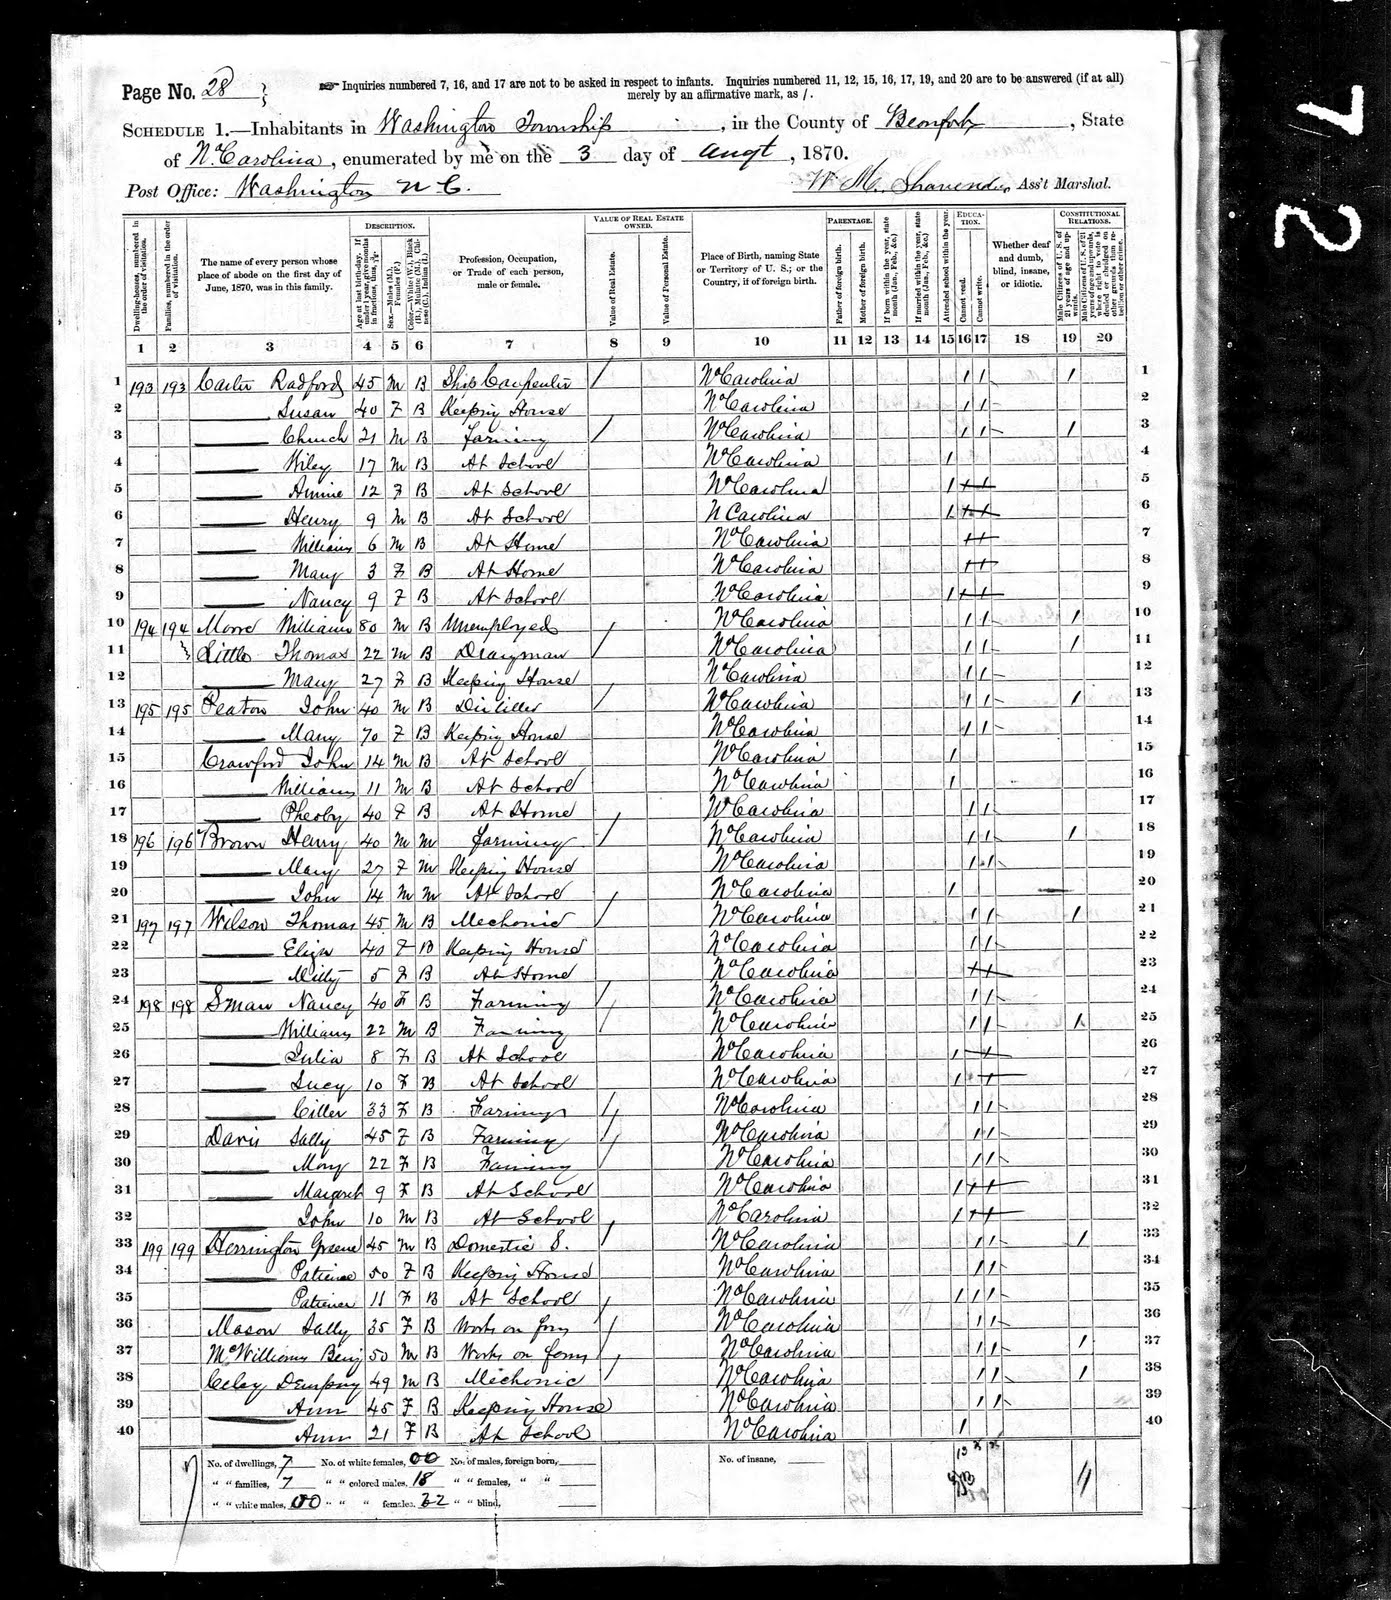 Page No. 28
☞ Inquiries numbered 7, 16, and 17 are not to be asked in respect to infants. Inquiries numbered 11, 12, 15, 16, 17, 19, and 20 are to be answered (if at all)
merely by an affirmative mark, as /.
SCHEDULE 1.—Inhabitants in Washington Township, in the County of Beaufort, State
of No Carolina, enumerated by me on the 3 day of Augt, 1870.
Post Office: Washington N C. W. M. Ass't Marshal.
Dwelling-houses, numbered in the order of visitation.
Families, numbered in the order of visitation.
The name of every person whose place of abode on the first day of June, 1870, was in this family.
DESCRIPTION.
Age at last birth-day. If under 1 year, give months in fractions, thus, 3/12.
Sex.—Males (M.), Females (F.)
Color.—White (W.), Black (B.), Mulatto (M.), Chinese (C.), Indian (I.)
Profession, Occupation, or Trade of each person, male or female.
VALUE OF REAL ESTATE OWNED.
Value of Real Estate.
Value of Personal Estate.
Place of Birth, naming State or Territory of U. S.; or the Country, if of foreign birth.
PARENTAGE.
Father of foreign birth.
Mother of foreign birth.
If born within the year, state month (Jan., Feb., &c.)
If married within the year, state month (Jan., Feb., &c.)
Attended school within the year.
EDUCATION.
Cannot read.
Cannot write.
Whether deaf and dumb, blind, insane, or idiotic.
CONSTITUTIONAL RELATIONS.
Male Citizens of U. S. of 21 years of age and upwards.
Male Citizens of U. S. of 21 years of age and upwards, where right to vote is denied or abridged on other grounds than rebellion or other crime.
1 2 3 4 5 6 7 8 9 10 11 12 13 14 15 16 17 18 19 20
1 193 193 Carter Radford 45 M B Ship Carpenter / No Carolina 1 1 1 1
2 — Susan 40 F B Keeping House No Carolina 1 1 2
3 — Church 21 M B Farming / No Carolina 1 1 1 3
4 — Wiley 17 M B At School No Carolina 1 4
5 — Annie 12 F B At School No Carolina 1 1 1 5
6 — Henry 9 M B At School N Carolina 1 1 1 6
7 — William 6 M B At Home No Carolina 1 1 7
8 — Mary 3 F B At Home No Carolina 1 1 8
9 — Nancy 9 F B At School No Carolina 1 1 1 9
10 194 194 Moore William 80 M B Unemployed No Carolina 1 1 1 10
11 Little Thomas 22 M B Drayman / No Carolina 1 1 1 11
12 — Mary 27 F B Keeping House No Carolina 1 1 12
13 195 195 Peaton John 40 M B Distiller / No Carolina 1 1 1 13
14 — Mary 70 F B Keeping House No Carolina 1 1 14
15 Crawford John 14 M B At School No Carolina 1 15
16 — William 11 M B At School No Carolina 1 16
17 — Pheoby 40 F B At Home No Carolina 1 1 17
18 196 196 Brown Henry 40 M M Farming / No Carolina 1 1 1 18
19 — Mary 27 F M Keeping House No Carolina 1 1 19
20 — John 14 M M At School No Carolina 1 20
21 197 197 Wilson Thomas 45 M B Mechonic / No Carolina 1 1 1 21
22 — Eliza 40 F B Keeping House No Carolina 1 1 22
23 — 5 F B At Home No Carolina 1 1 23
24 198 198 Smaw Nancy 40 F B Farming / No Carolina 1 1 24
25 — William 22 M B Farming / No Carolina 1 1 1 25
26 — Julia 8 F B At School No Carolina 1 1 1 26
27 — Lucy 10 F B At School No Carolina 1 1 1 27
28 — Ciller 33 F B Farming / No Carolina 1 1 28
29 Davis Sally 45 F B Farming / No Carolina 1 1 29
30 — Mary 22 F B Farming / No Carolina 1 1 30
31 — Margaret 9 F B At School No Carolina 1 1 1 31
32 — John 10 M B At School No Carolina 1 1 1 32
33 199 199 Herrington Greene 45 M B Domestic S. / No Carolina 1 1 1 33
34 — Patience 50 F B Keeping House No Carolina 1 1 34
35 — Patience 11 F B At School No Carolina 1 1 1 35
36 Mason Sally 35 F B Works on farm / No Carolina 1 1 36
37 McWilliams Benj 50 M B Works on farm / No Carolina 1 1 1 37
38 Dempsey 49 M B Mechonic / No Carolina 1 1 1 38
39 — Ann 45 F B Keeping House No Carolina 1 1 39
40 — Ann 21 F B At School No Carolina 1 40
No. of dwellings, 7 No. of white females, 00 No. of males, foreign born, No. of insane,
" " families, 7 " " colored males, 18 " " females, " "
" " white males, 00 " " " females, 22 " " blind,
72